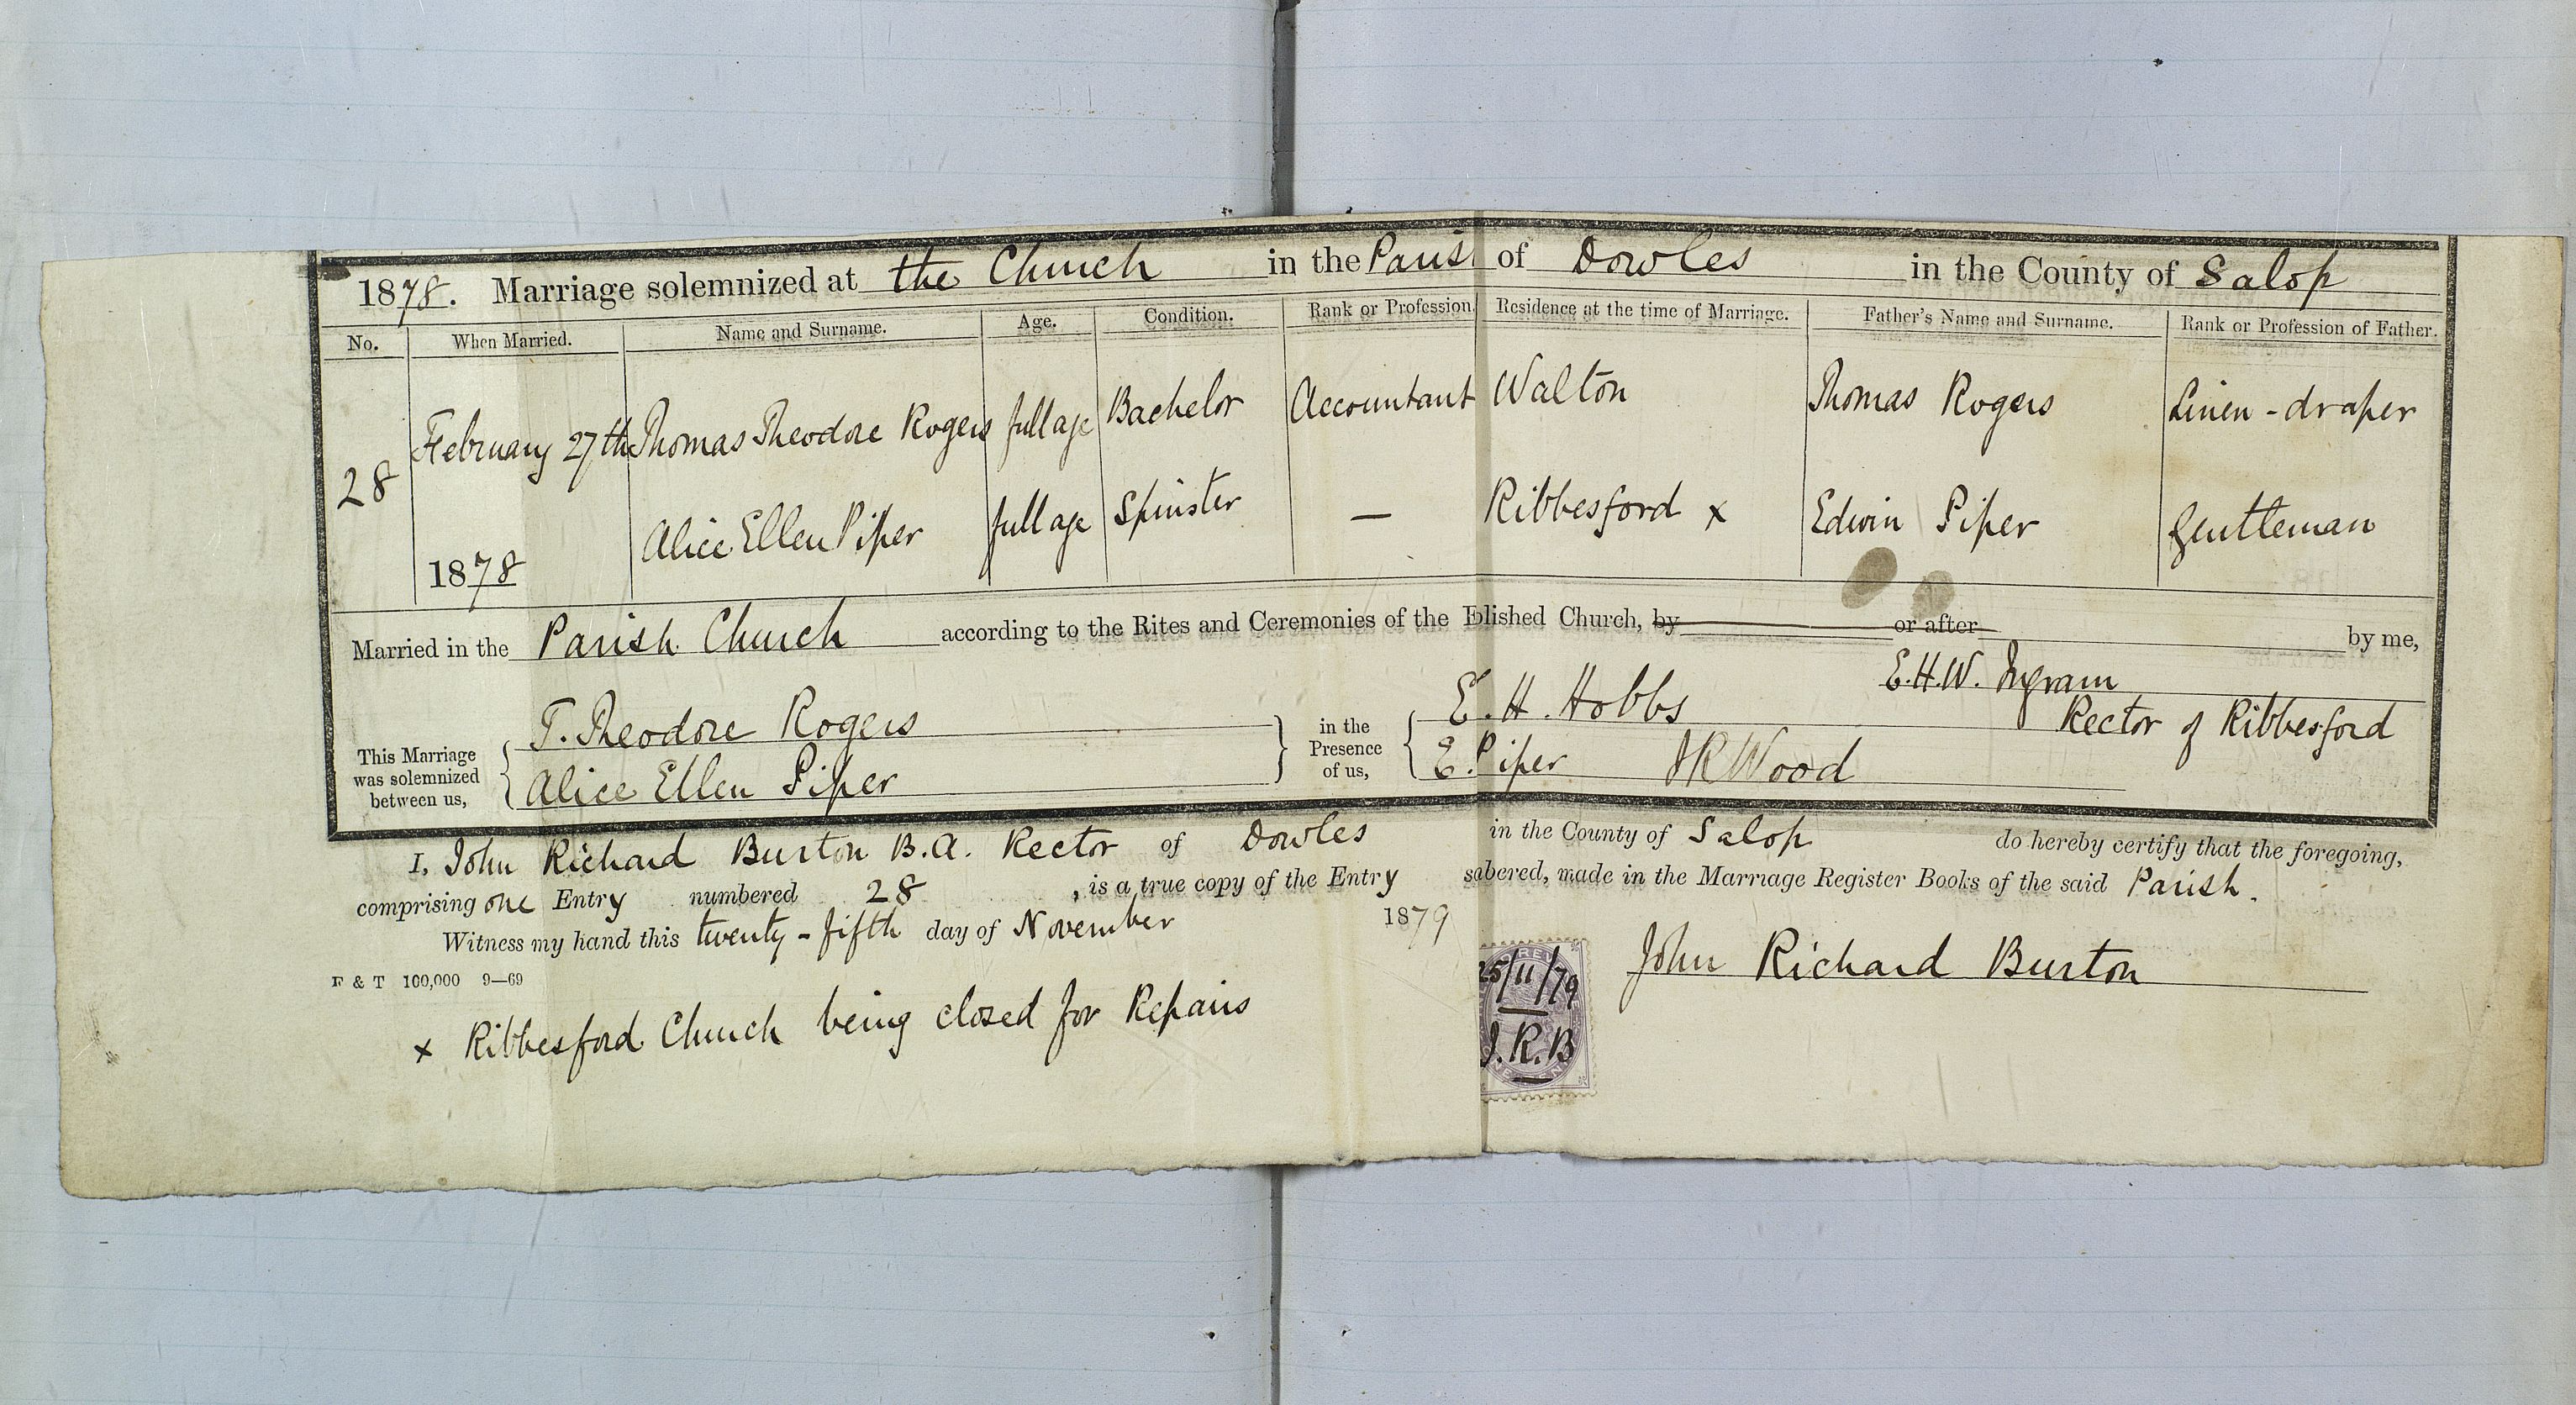 1878. Marriage solemnized at the Church in the Paris of Dowles in the County of Salop
No. When Married. Name and Surname. Age. Condition. Rank or Profession. Residence at the time of Marriage. Father's Name and Surname. Rank or Profession of Father.
28 February 27th Thomas Theodore Rogers full age Bachelor Accountant Walton Thomas Rogers Linen-draper
1878 Alice Ellen Piper full age Spinster — Ribbesford x Edwin Piper Gentleman
Married in the Parish Church according to the Rites and Ceremonies of the Elished Church, by or after by me,
E.H.W. Ingram
Rector of Ribbesford
This Marriage was solemnized between us, T. Theodore Rogers
Alice Ellen Piper
in the Presence of us, E. H. Hobbs
E. Piper JR Wood
I, John Richard Burton B.A. Rector of Dowles in the County of Salop do hereby certify that the foregoing,
comprising one Entry numbered 28, is a true copy of the Entry sabered, made in the Marriage Register Books of the said Parish.
Witness my hand this twenty-fifth day of November 1879
25/11/79
J.R.B
John Richard Burton
F & T 100,000 9—69
x Ribbesford Church being closed for Repairs